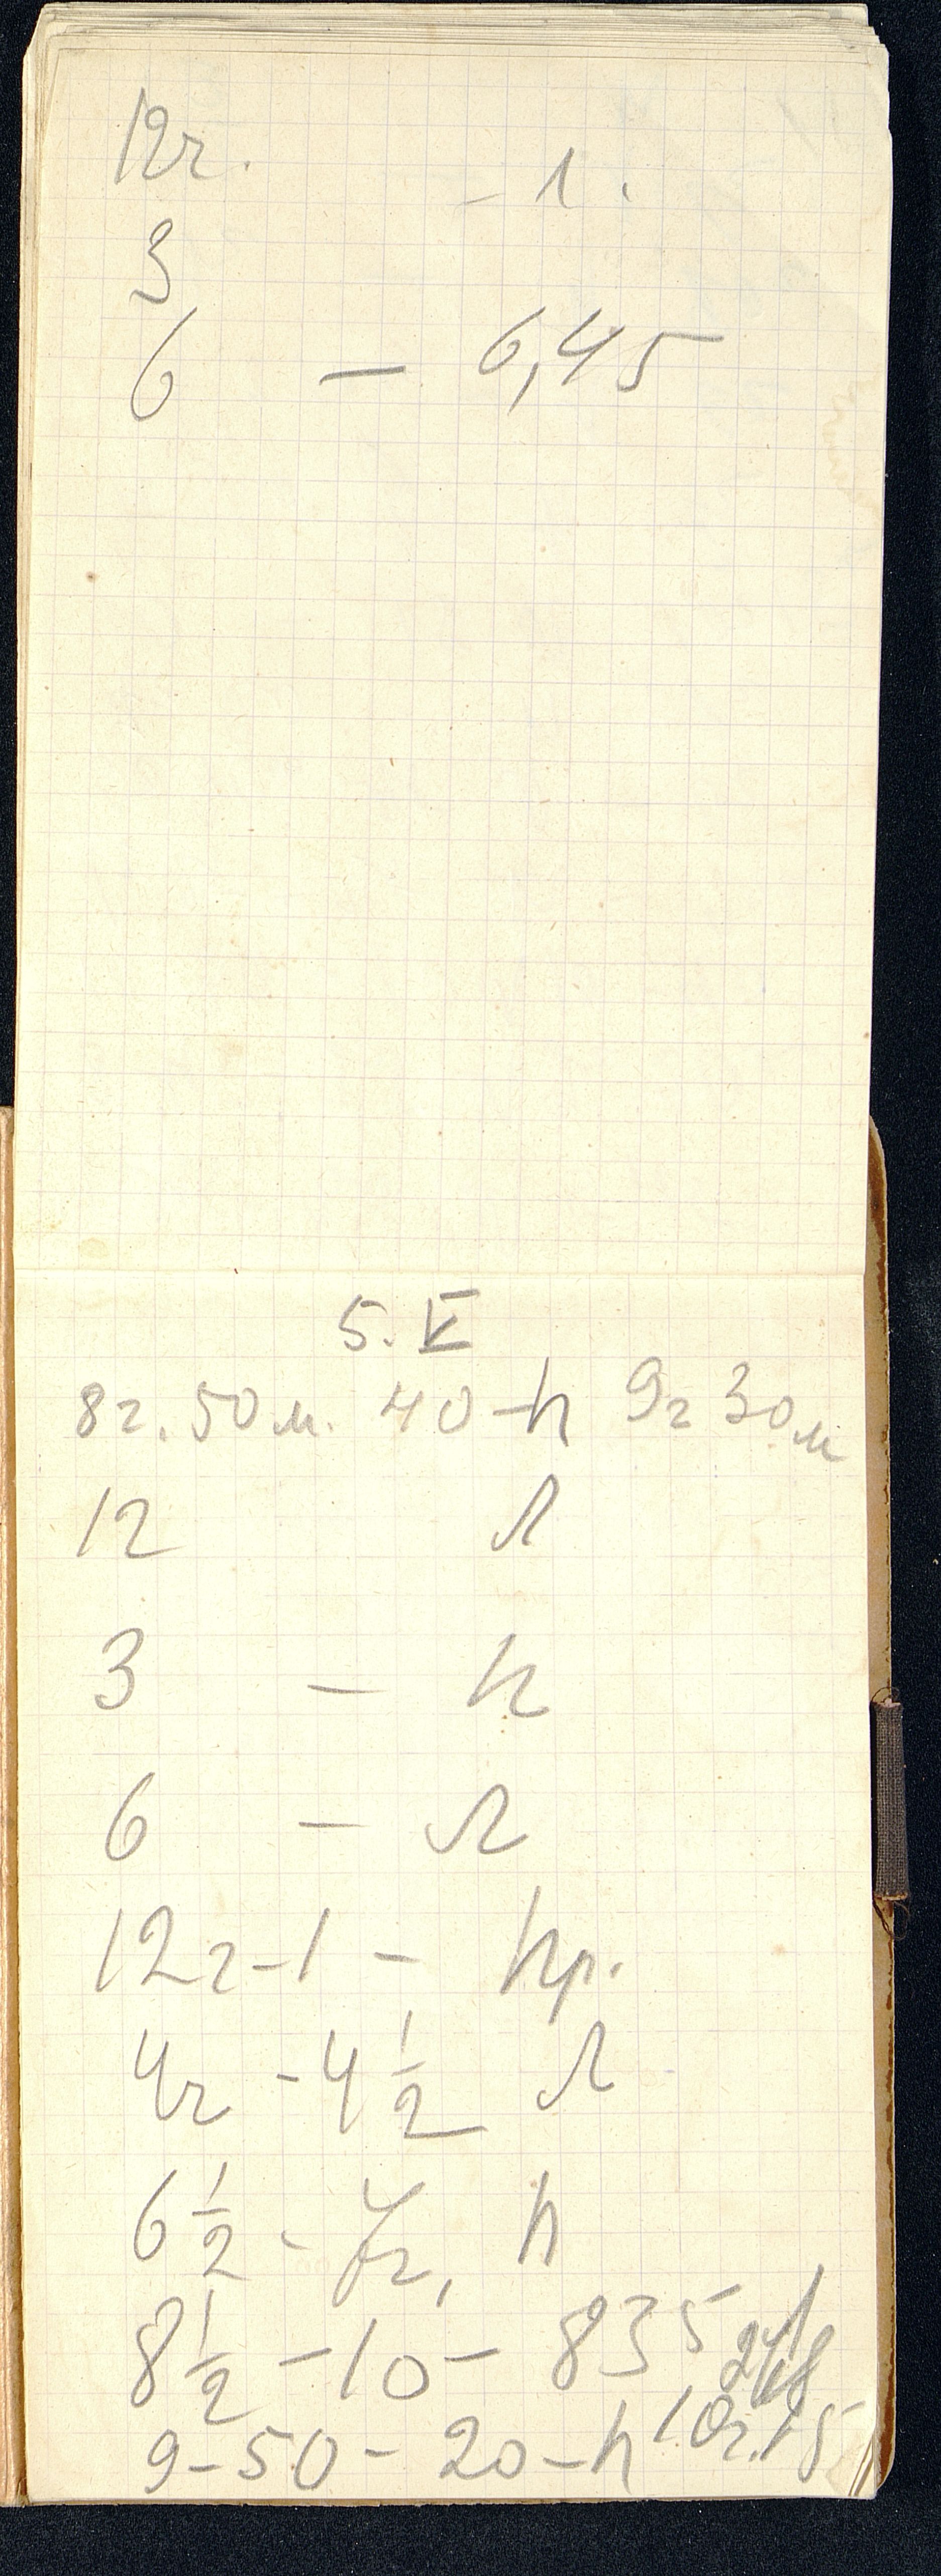 12ч. - 1.
3
6 - 6,45
5. V
8ч. 50 м. 40 - п 9ч 30м
12 л
3 - п
6 - л
12ч - 1 - пр.
4ч - 4 1/2 л
6 1/2 - 7ч, п
8 1/2 - 10 - 835
9-50 - 20 - п 10ч.15